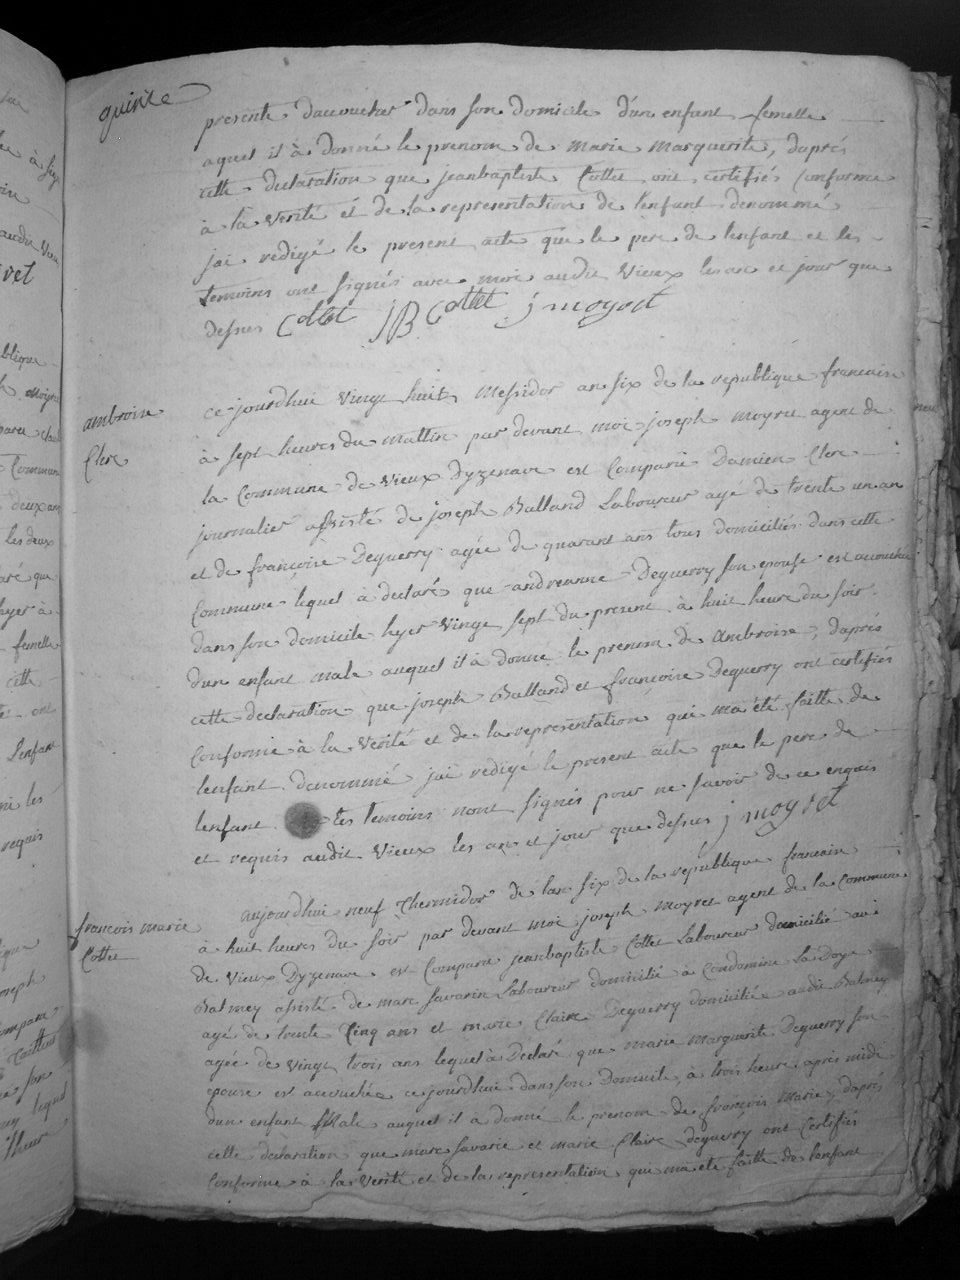 quinte
presente daccoucher dans son domicile d'un enfant femelle
aquel il à donné le prenom de marie marguerite, daprés
cette declaration que jeanbaptiste Collet ont certifiés Conforme
à la verité et de la representation de lenfant denommé
jai redigé le present acte que le pere de lenfant et les
temoins ont signés avec moi audit Vieux les an et jour que
desus Collet JB Collet j moyret
ambroise
Clere
ce jourdhui vingt huit Messidor an six de la republique francaise
à sept heures du mattin par devant moi joseph moyret agent de
la Commune de Vieux Dyzenave est Comparu Damien Clere
journalier assisté de joseph Balland Laboureur agé de trente un an
et de francoise Deguerry agée de quarant ans tous domiciliés dans cette
Commune lequel a declaré que andreanne Deguerry son epouse est accouchée
dans son domicile hyer Vingt sept du present à huit heure du soir
dun enfant male auquel il à donné le prenom de Ambroise, daprés
cette declaration que joseph Balland et françoise Deguerry ont certifiés
Conforme à la Verité et de la representation qui ma été faitte de
lenfant denommé jai redigé le present acte que le pere de
lenfant les temoins nont signés pour ne savoir de ce enquis
et requis audit Vieux les an et jour que desus j moyret
francois marie
Collet
aujourdhui neuf Thermidor de lan six de la republique francaise
à huit heures du soir par devant moi joseph moyret agent de la Commune
de Vieux Dyzenave est Comparu jeanbaptiste Collet Laboureur domicilié au
Balmey assisté de marc savarin Laboureur domicilié à Condamine La Doye
agé de trente Cinq ans et marie Claire Deguerry domiciliée audit Balmey
agée de vingt trois ans lequel à Declaré que marie marguerite Deguerry son
epouse est accouchée ce jourdhui dans son Domicile, à trois heure après midi
dun enfant Male auquel il a donné le prenom de françois Marie, daprés
cette declaration que marc savarin et marie Claire deguerry ont Certifiés
Conforme à la verité et de la representation qui ma été faitte de lenfant